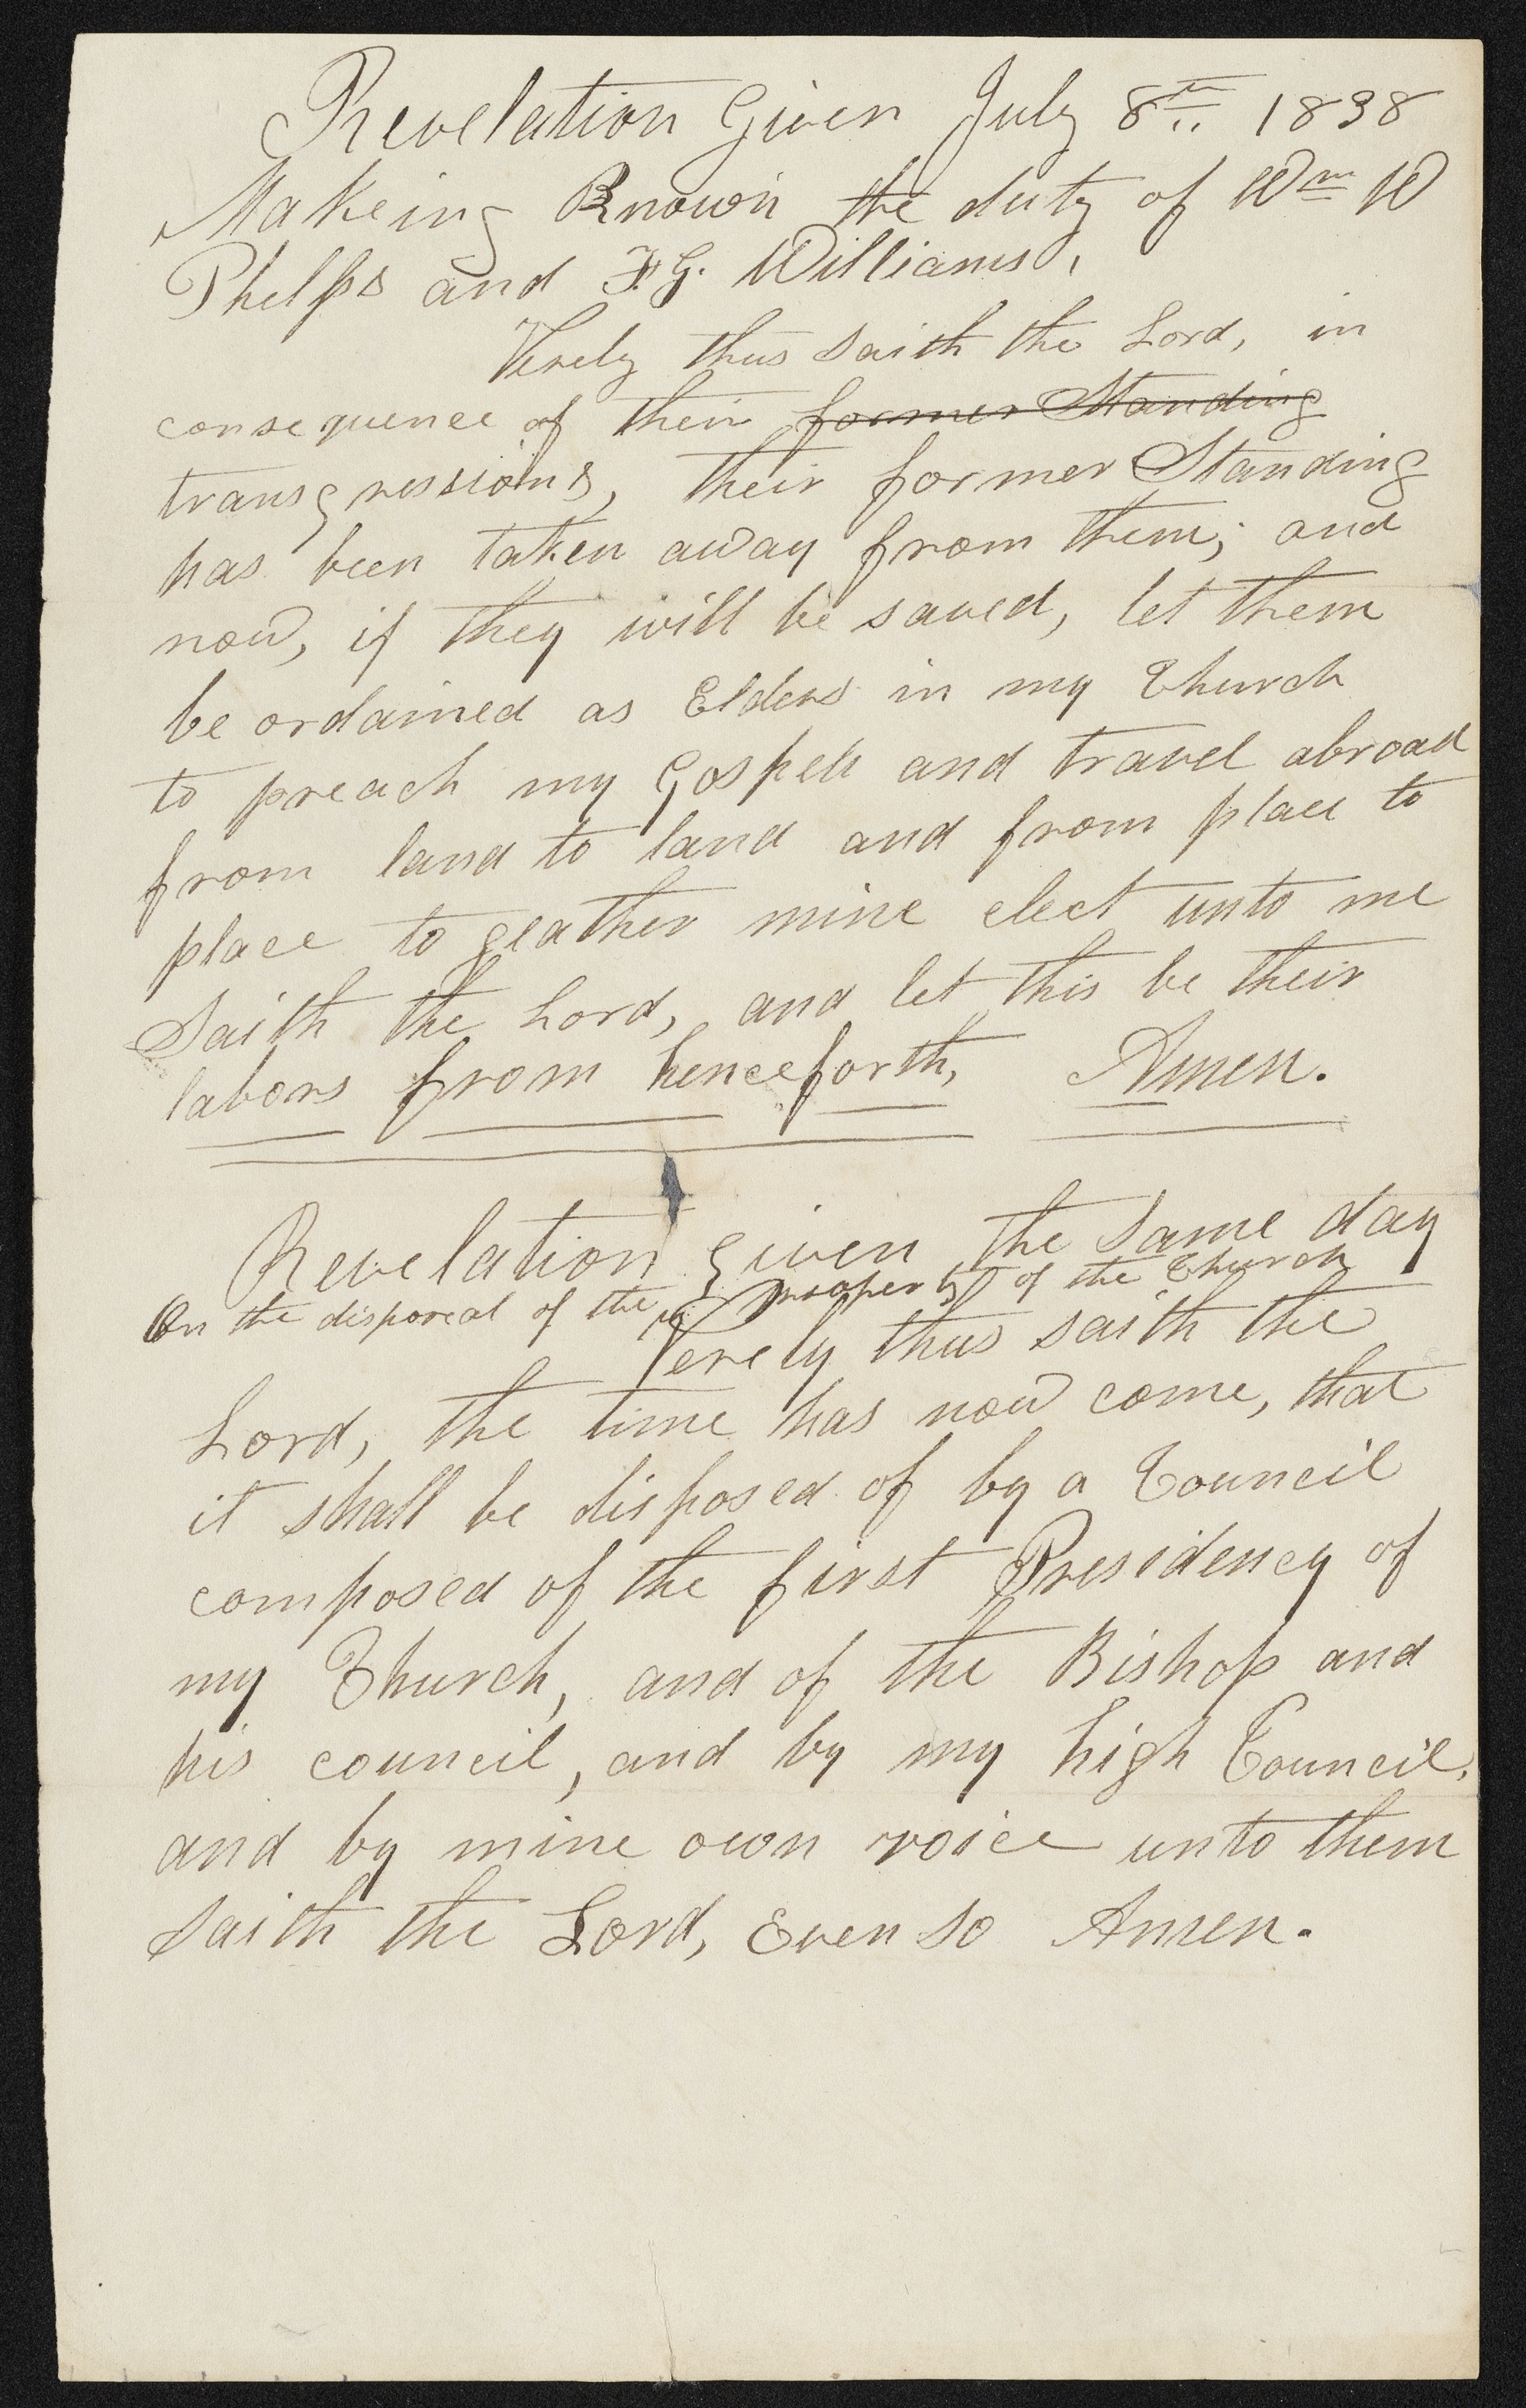 Revelation Given July 8th 1838
Makeing Known the duty of Wm W
Phelps and F. G. Williams,
Verely thus Saith the Lord, in
consequence of their former Standing
transgressions, their former Standing
has been taken away from them; and
now, if they will be saved, let them
be ordained as Elders in my Church
to preach my Gospell and travel abroad
from land to land and from place to
place to geather mine elect unto me
Saith the Lord, and let this be their
labors from henceforth, Amen.
Revelation given the Same day
On the disposeal of the property of the Church
Verely thus saith the
Lord, the time has now come, that
it shall be disposed of by a Council
composed of the first Presidency of
my Church, and of the Bishop and
his council, and by my high Council,
and by mine own voice unto them
Saith the Lord, Even So Amen.